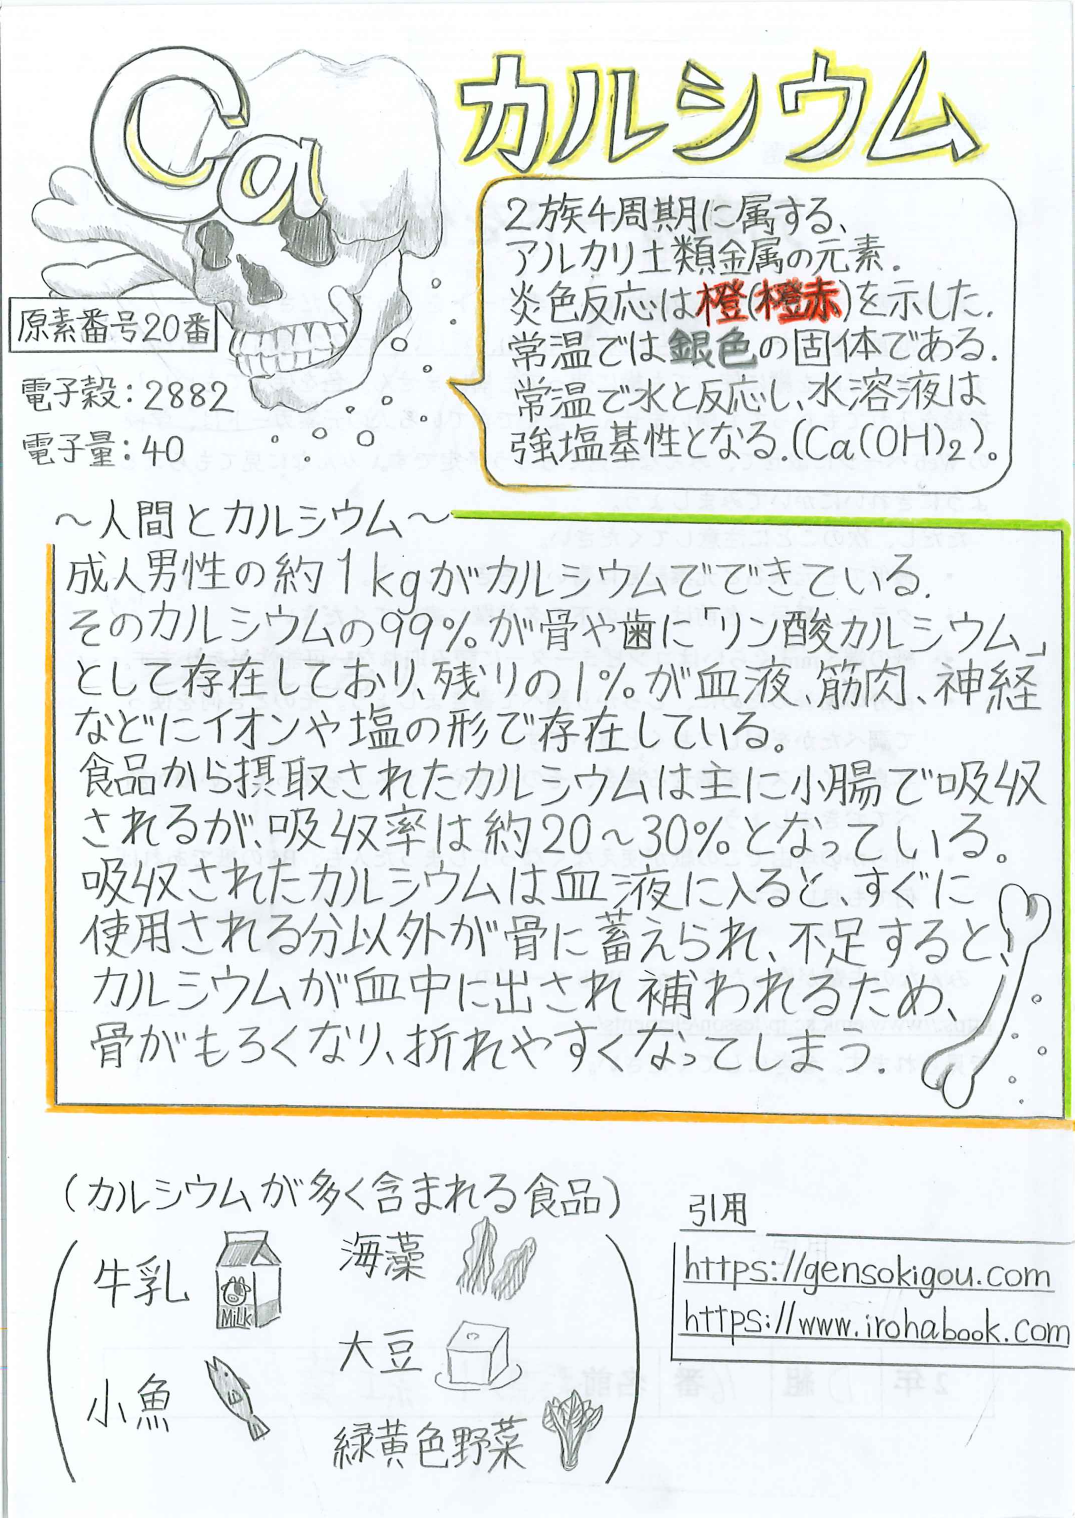 Ca
カルシウム
2族4周期に属する、
アルカリ土類金属の元素.
炎色反応は橙(橙赤)を示した.
常温では銀色の固体である.
常温で水と反応し、水溶液は
強塩基性となる.(Ca(OH)₂)。
原素番号20番
電子穀:2882
電子量:40
～人間とカルシウム～
成人男性の約1kgがカルシウムでできている.
そのカルシウムの99%が骨や歯に「リン酸カルシウム」
として存在しており、残りの1%が血液、筋肉、神経
などにイオンや塩の形で存在している。
食品から摂取されたカルシウムは主に小腸で吸収
されるが、吸収率は約20～30%となっている。
吸収されたカルシウムは血液に入ると、すぐに
使用される分以外が骨に蓄えられ、不足すると、
カルシウムが血中に出され補われるため、
骨がもろくなり、折れやすくなってしまう.
(カルシウムが多く含まれる食品)
牛乳
Milk
海藻
大豆
小魚
緑黄色野菜
引用
https://gensokigou.com
https://www.irohabook.com